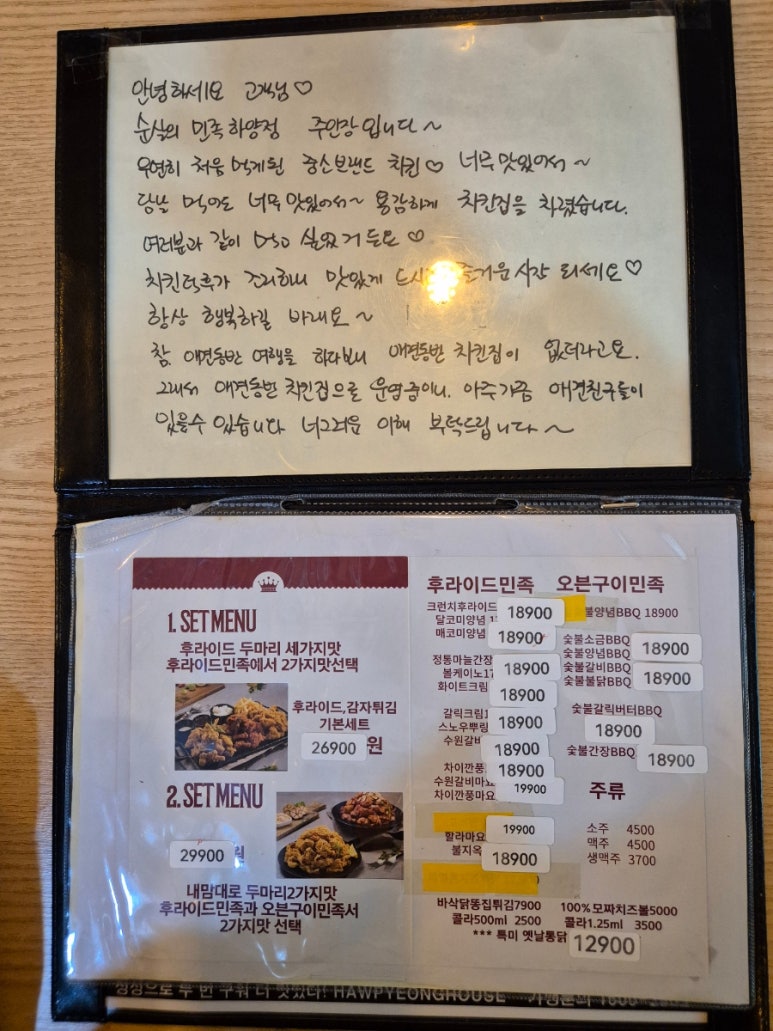 안녕하세요 고객님♡
순살의 민족하양점 주인장입니다~
우연히 처음먹게된 중소브랜드 치킨♡ 너무맛있어서~
당날 먹어도 너무맛있어서~ 용감하게 치킨집을 차렸습니다.
여러분과 같이 먹고 싶었거든요♡
조리하니 맛있게 즐거운시간 되세요♡
항상 행복하길 바래요~
참, 애견동반 여행을 하다보니 애견동반치킨집이 없더라고요.
그래서 애견동반치킨집으로 운영중이니. 아주가끔 애견친구들이
있을수 있습니다 너그러운 이해 부탁드립니다~
1. SET MENU
후라이드 두마리 세가지맛
후라이드민족에서 2가지맛선택
후라이드,감자튀김
기본세트
26900원
2. SET MENU
29900원
내맘대로 두마리2가지맛
후라이드민족과 오븐구이민족서
2가지맛 선택
후라이드민족
크런치후라이드 18900
달코미양념
매코미양념 18900
정통마늘간장 18900
볼케이노
화이트크림 18900
갈릭크림
스노우뿌링 18900
수원갈비 18900
차이깐풍 18900
수원갈비마요 19900
차이깐풍마요
할라마요 19900
불지옥 18900
바삭닭똥집튀김7900
콜라500ml 2500
오븐구이민족
불양념BBQ 18900
숯불소금BBQ
숯불양념BBQ 18900
숯불갈비BBQ
숯불불닭BBQ 18900
숯불갈릭버터BBQ
18900
숯불간장BBQ 18900
주류
소주 4500
맥주 4500
생맥주 3700
100%모짜치즈볼5000
콜라1.25ml 3500
*** 특미 옛날통닭 12900
HAWPYEONGHOUSE